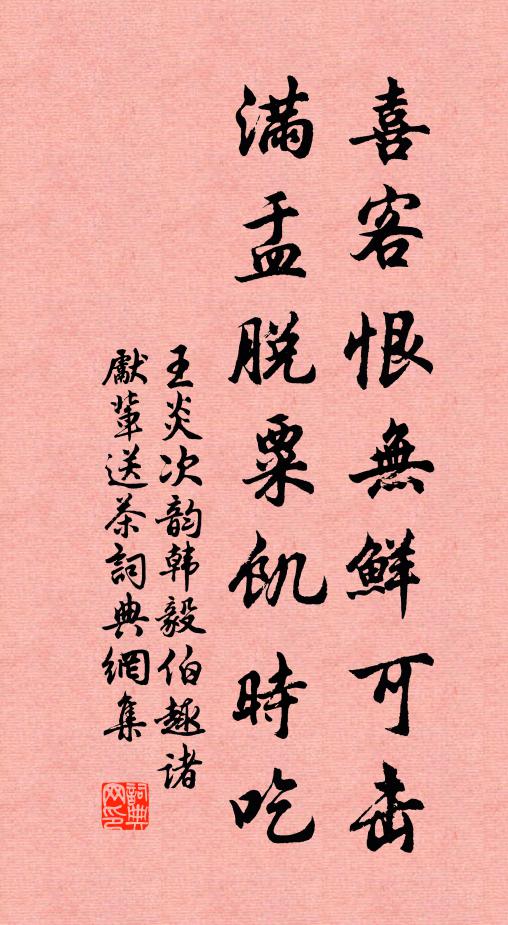 喜客恨無鮮可击
滿盂脫粟飢時吃
王炎次韵韩毅伯趣诸
獻輩送茶詞典網集
詞典网印